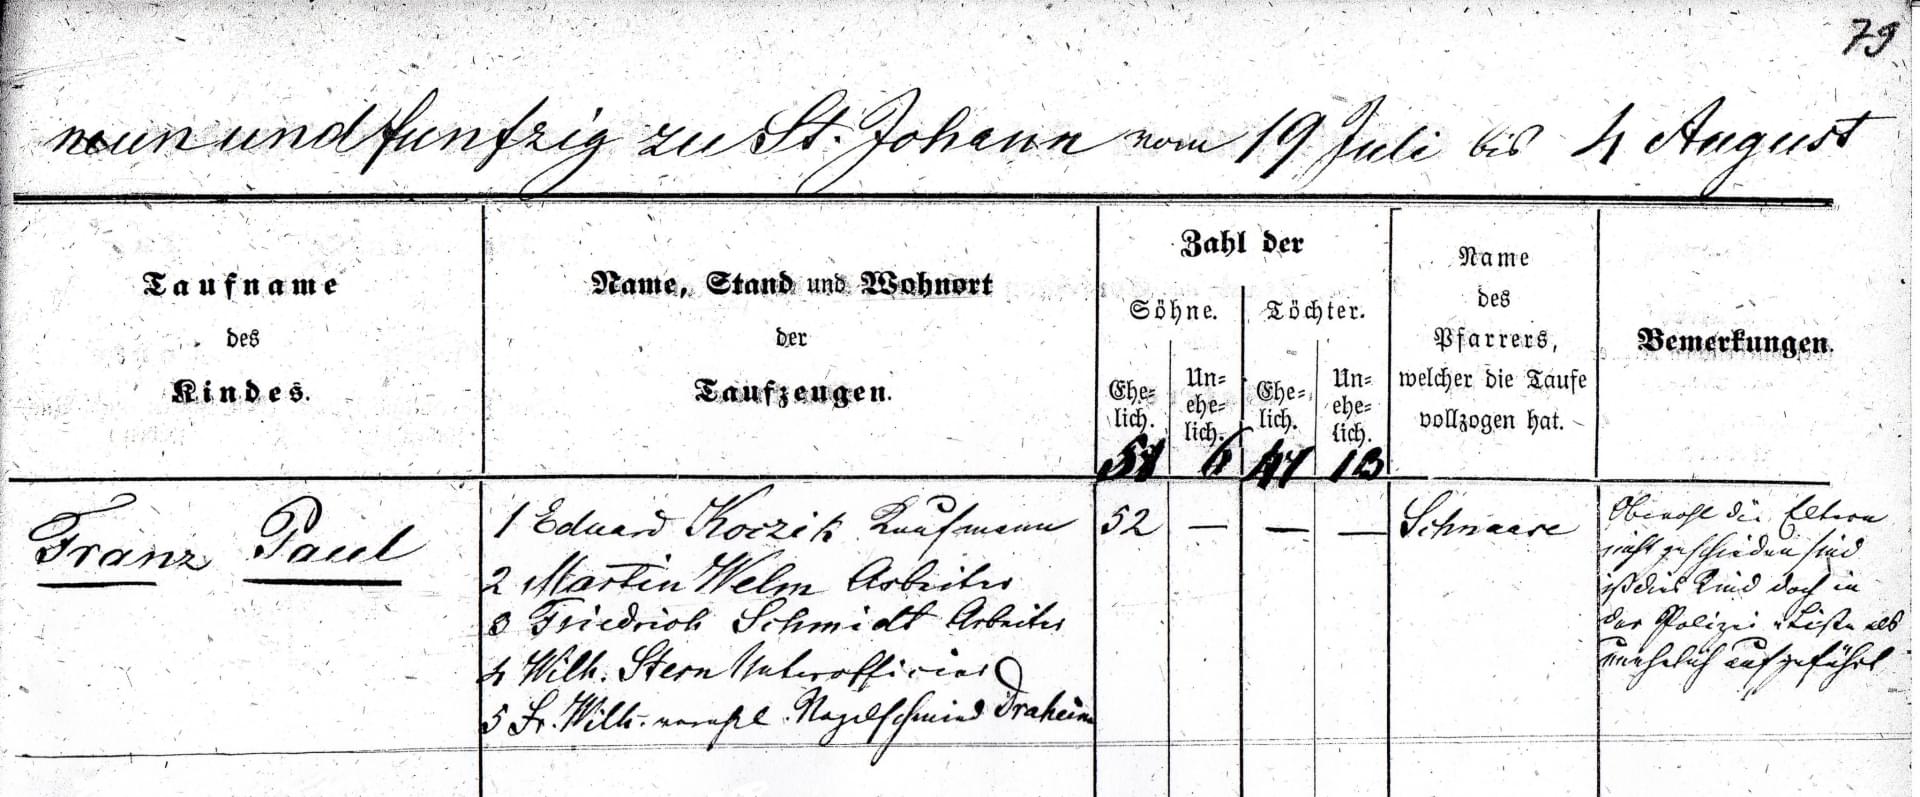 79
neun und funfzig zu St. Johann vom 19 Juli bis 4 August
Taufname
des
Kindes.
Name, Stand und Wohnort
der
Taufzeugen.
Zahl der
Söhne. Töchter.
Ehe-
lich.
Un-
ehe-
lich.
Ehe-
lich.
Un-
ehe-
lich.
Name
des
Pfarrers,
welcher die Taufe
vollzogen hat.
Bemerkungen.
51 6 47 13
Franz Paul
1 Eduard Koczik Kaufmann
2 Martin Welm Arbeiter
3 Friedrich Schmidt Arbeiter
4 Wilh. Stern Unterofficier
5 Fr. Wilh. verehl. Nagelschmied Draheim
52 — — —
Schnaare
Obwohl die Eltern
nicht geschieden sind
ist dies Kind doch in
der Polizei-Liste als
unehelich aufgeführt